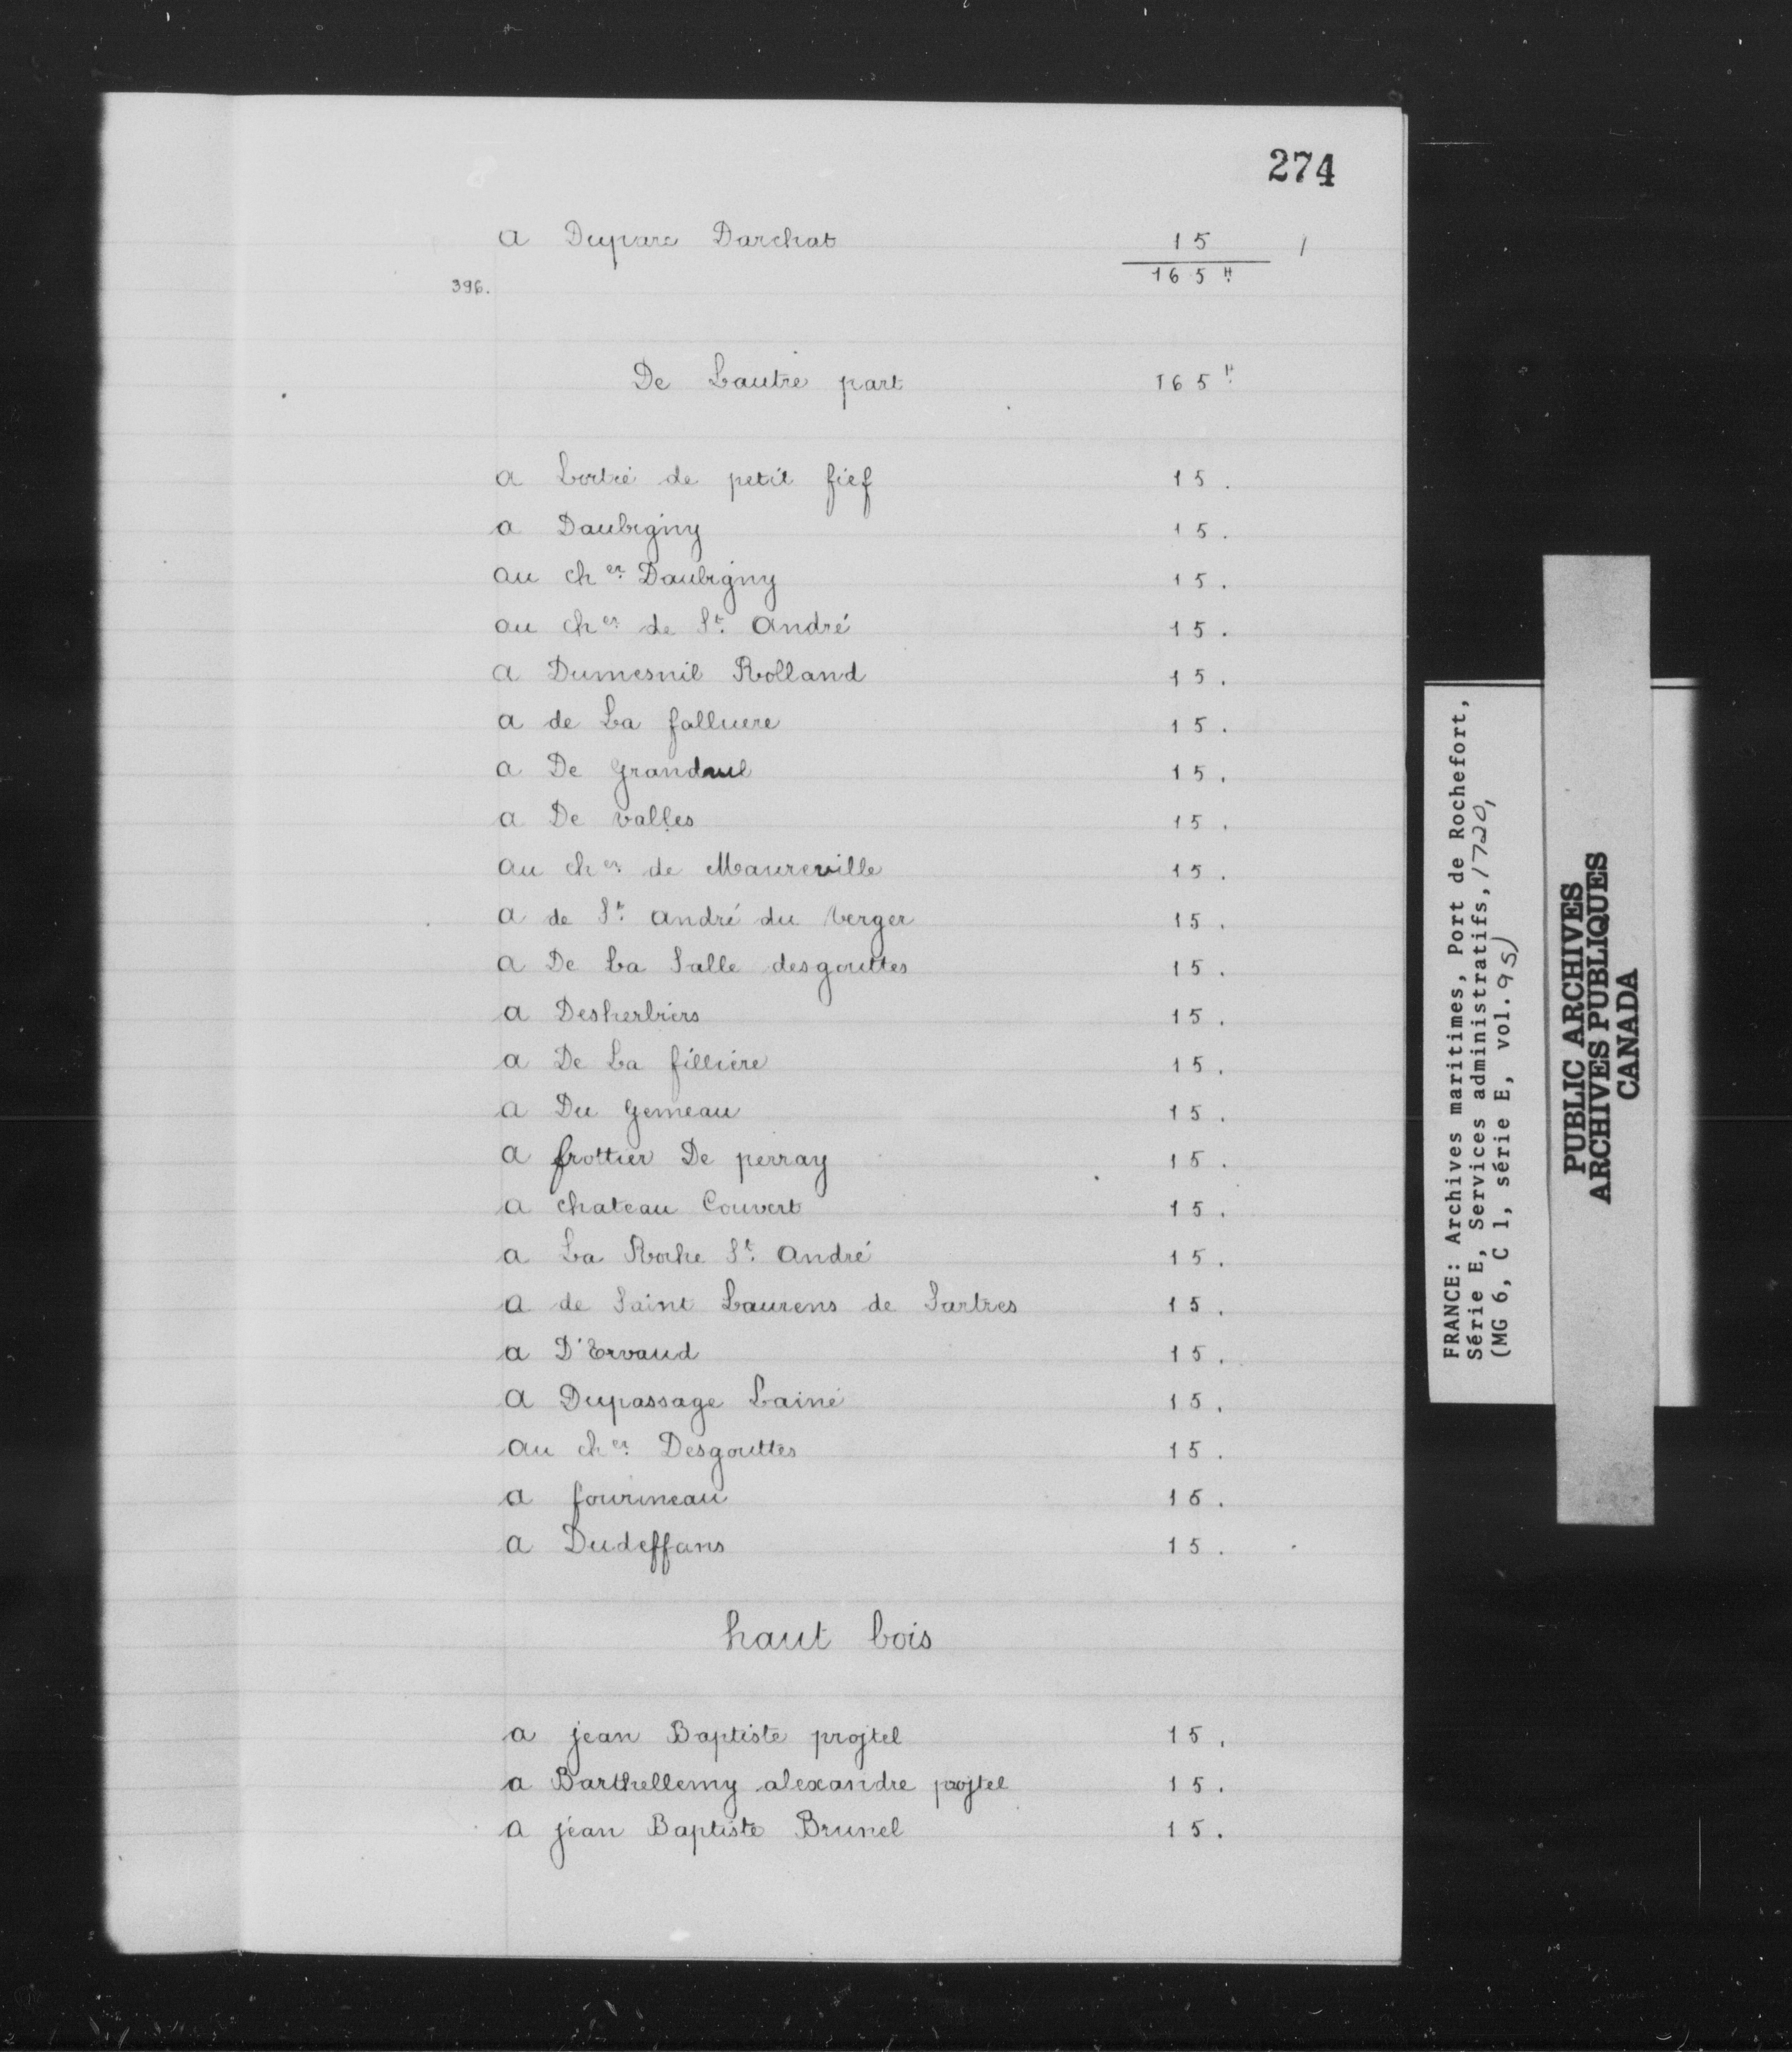 274
a Duparc Darchat 15 /
165 ʰ.
396.
De Lautre part 165 ʰ.
a Lortié de petit fief 15.
a Daubigny 15.
au ch er. Daubigny 15.
au ch er. de St. André 15.
a Dumesnil Rolland 15.
a de La falluere 15.
a De Grandrul 15.
a De valles 15.
au ch er. de Maureville 15.
a de St. andré du Verger 15.
a De La Salle desgouttes 15.
a Desherbiers 15.
a De La fillière 15.
a Du Gemeau 15.
a frottier De perray 15.
a chateau Couvert 15.
a La Roche St. André 15.
a de Saint Laurens de Sartres 15.
a D'Ervaud 15.
a Dupassage Lainé 15.
au ch er. Desgouttes 15.
a fourineau 15.
a Dudeffans 15.
haut bois
a jean Baptiste projtel 15.
a Barthellemy alexandre projtel 15.
a jean Baptiste Brunel 15.
FRANCE: Archives maritimes, Port de Rochefort,
Série E, Services administratifs, 1720,
(MG 6, C 1, série E, vol. 95)
PUBLIC ARCHIVES
ARCHIVES PUBLIQUES
CANADA